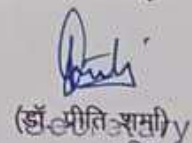 (डॉ. प्रीति शर्मा)